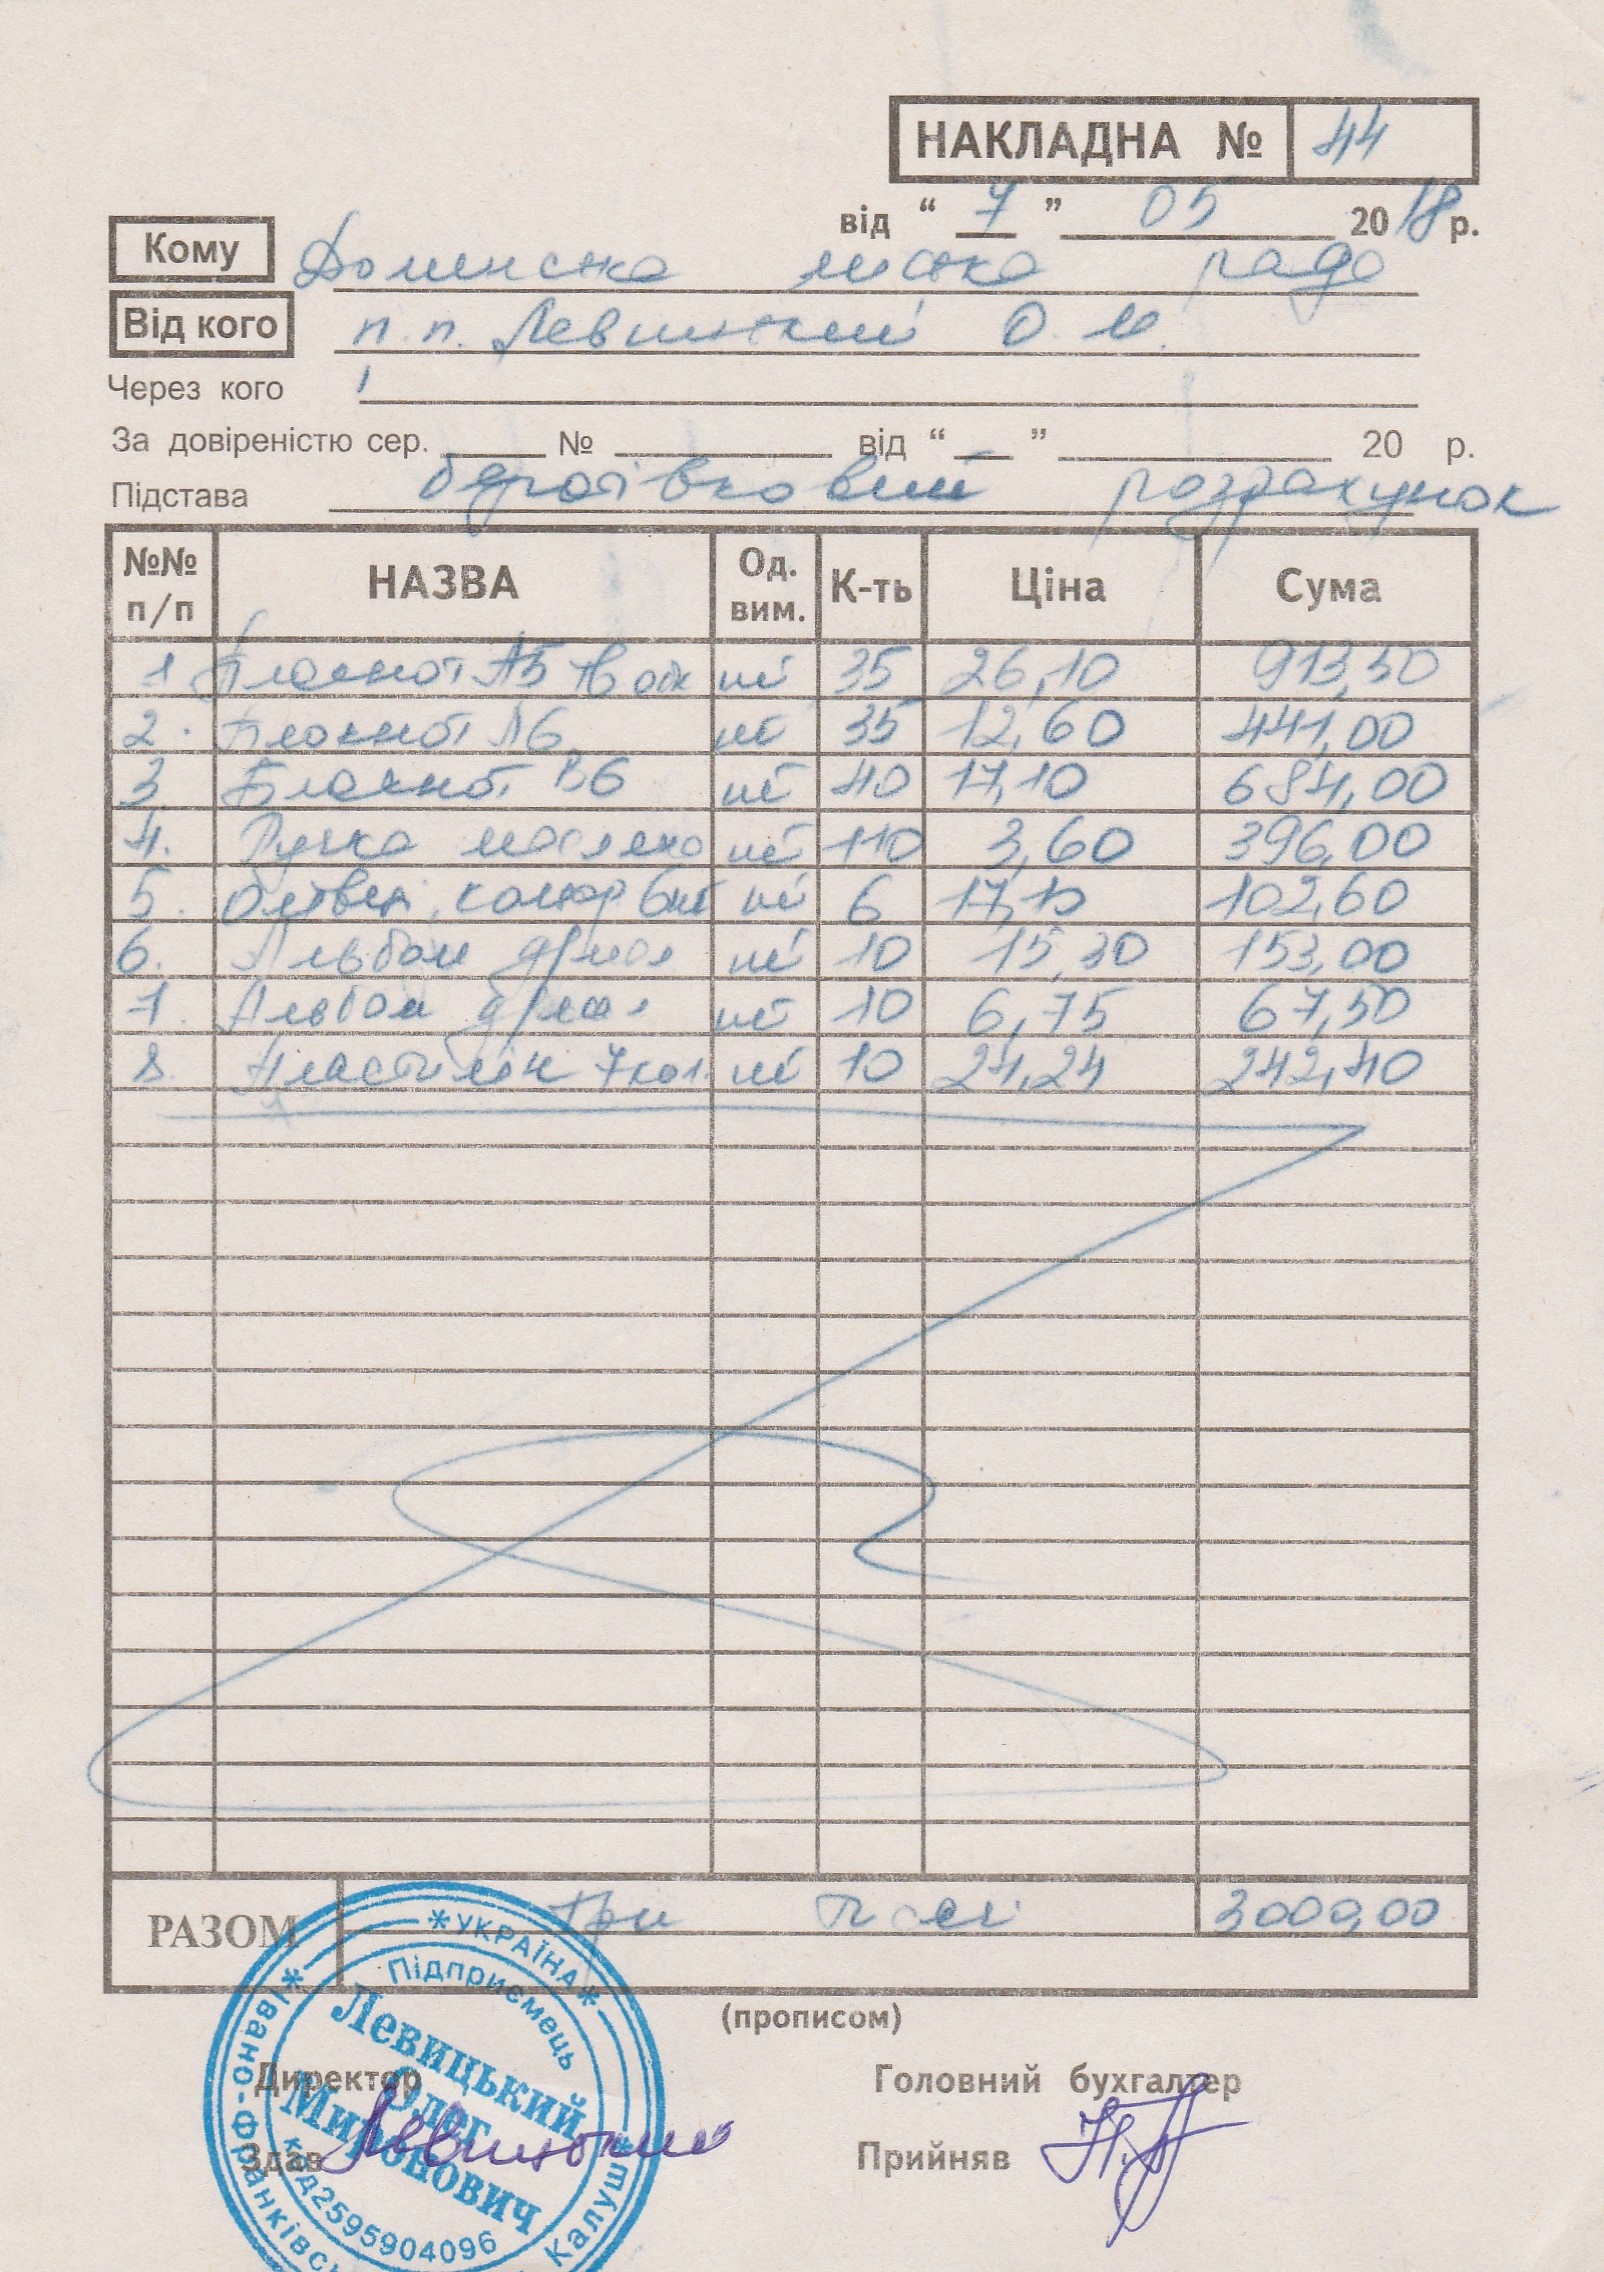 НАКЛАДНА № 44
від “ 7 ” 05 2018 р.
Кому Долинська міська рада
Від кого п.п. Левицький О.М.
Через кого
За довіреністю сер. № від “ ” 20 р.
Підстава безготівковий розрахунок
№№ п/п НАЗВА Од. вим. К-ть Ціна Сума
1 Блокнот А5 шт 35 26,10 913,50
2. Блокнот А6 шт 35 12,60 441,00
3 Блокнот В6 шт 40 17,10 684,00
4. Ручка масляна шт 110 3,60 396,00
5. 6шт шт 6 17,10 102,60
6. Альбом шт 10 15,30 153,00
7. Альбом шт 10 6,75 67,50
8. Пластилін 7кол. шт 10 24,24 242,40
РАЗОМ три тисячі 3000,00
(прописом)
Директор Головний бухгалтер
Здав Левицький Прийняв
*УКРАЇНА*
Підприємець
Левицький
Олег
Миронович
код2595904096
Калуш